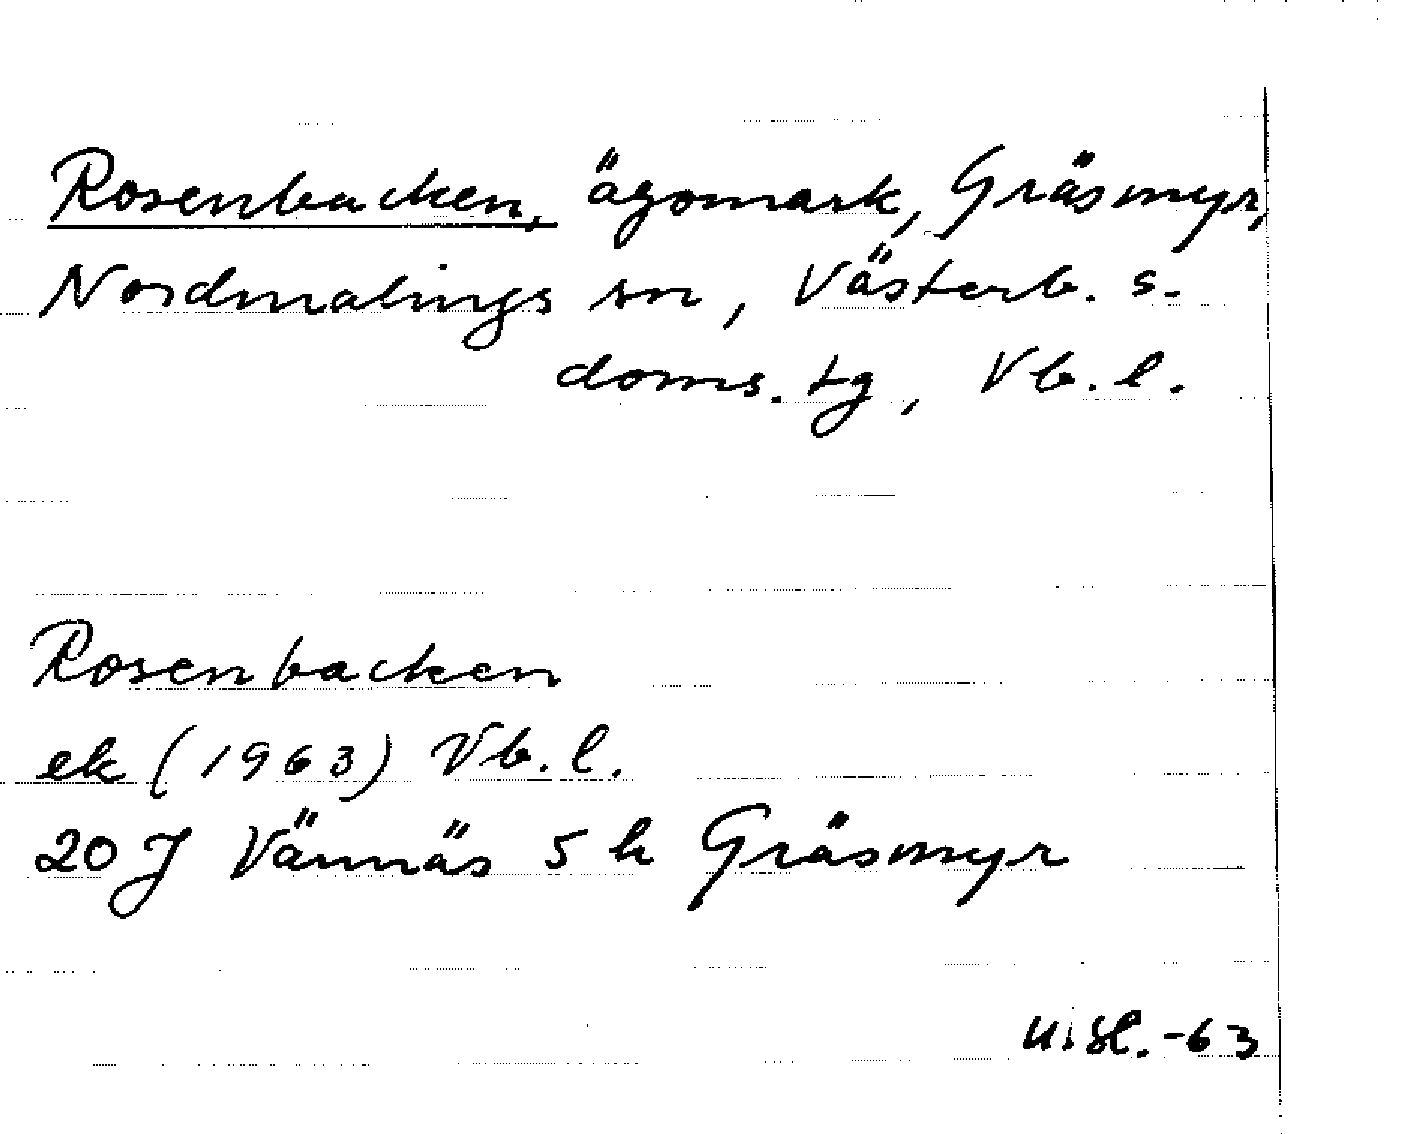 Rosenbacken, ägomark, Gräsmyr,
Nordmalings sn, Västerb. s.
doms. tg, Vb. l.
Rosenbacken
ek (1963) Vb. l.
20 J Vännäs 5 h Gräsmyr
-63